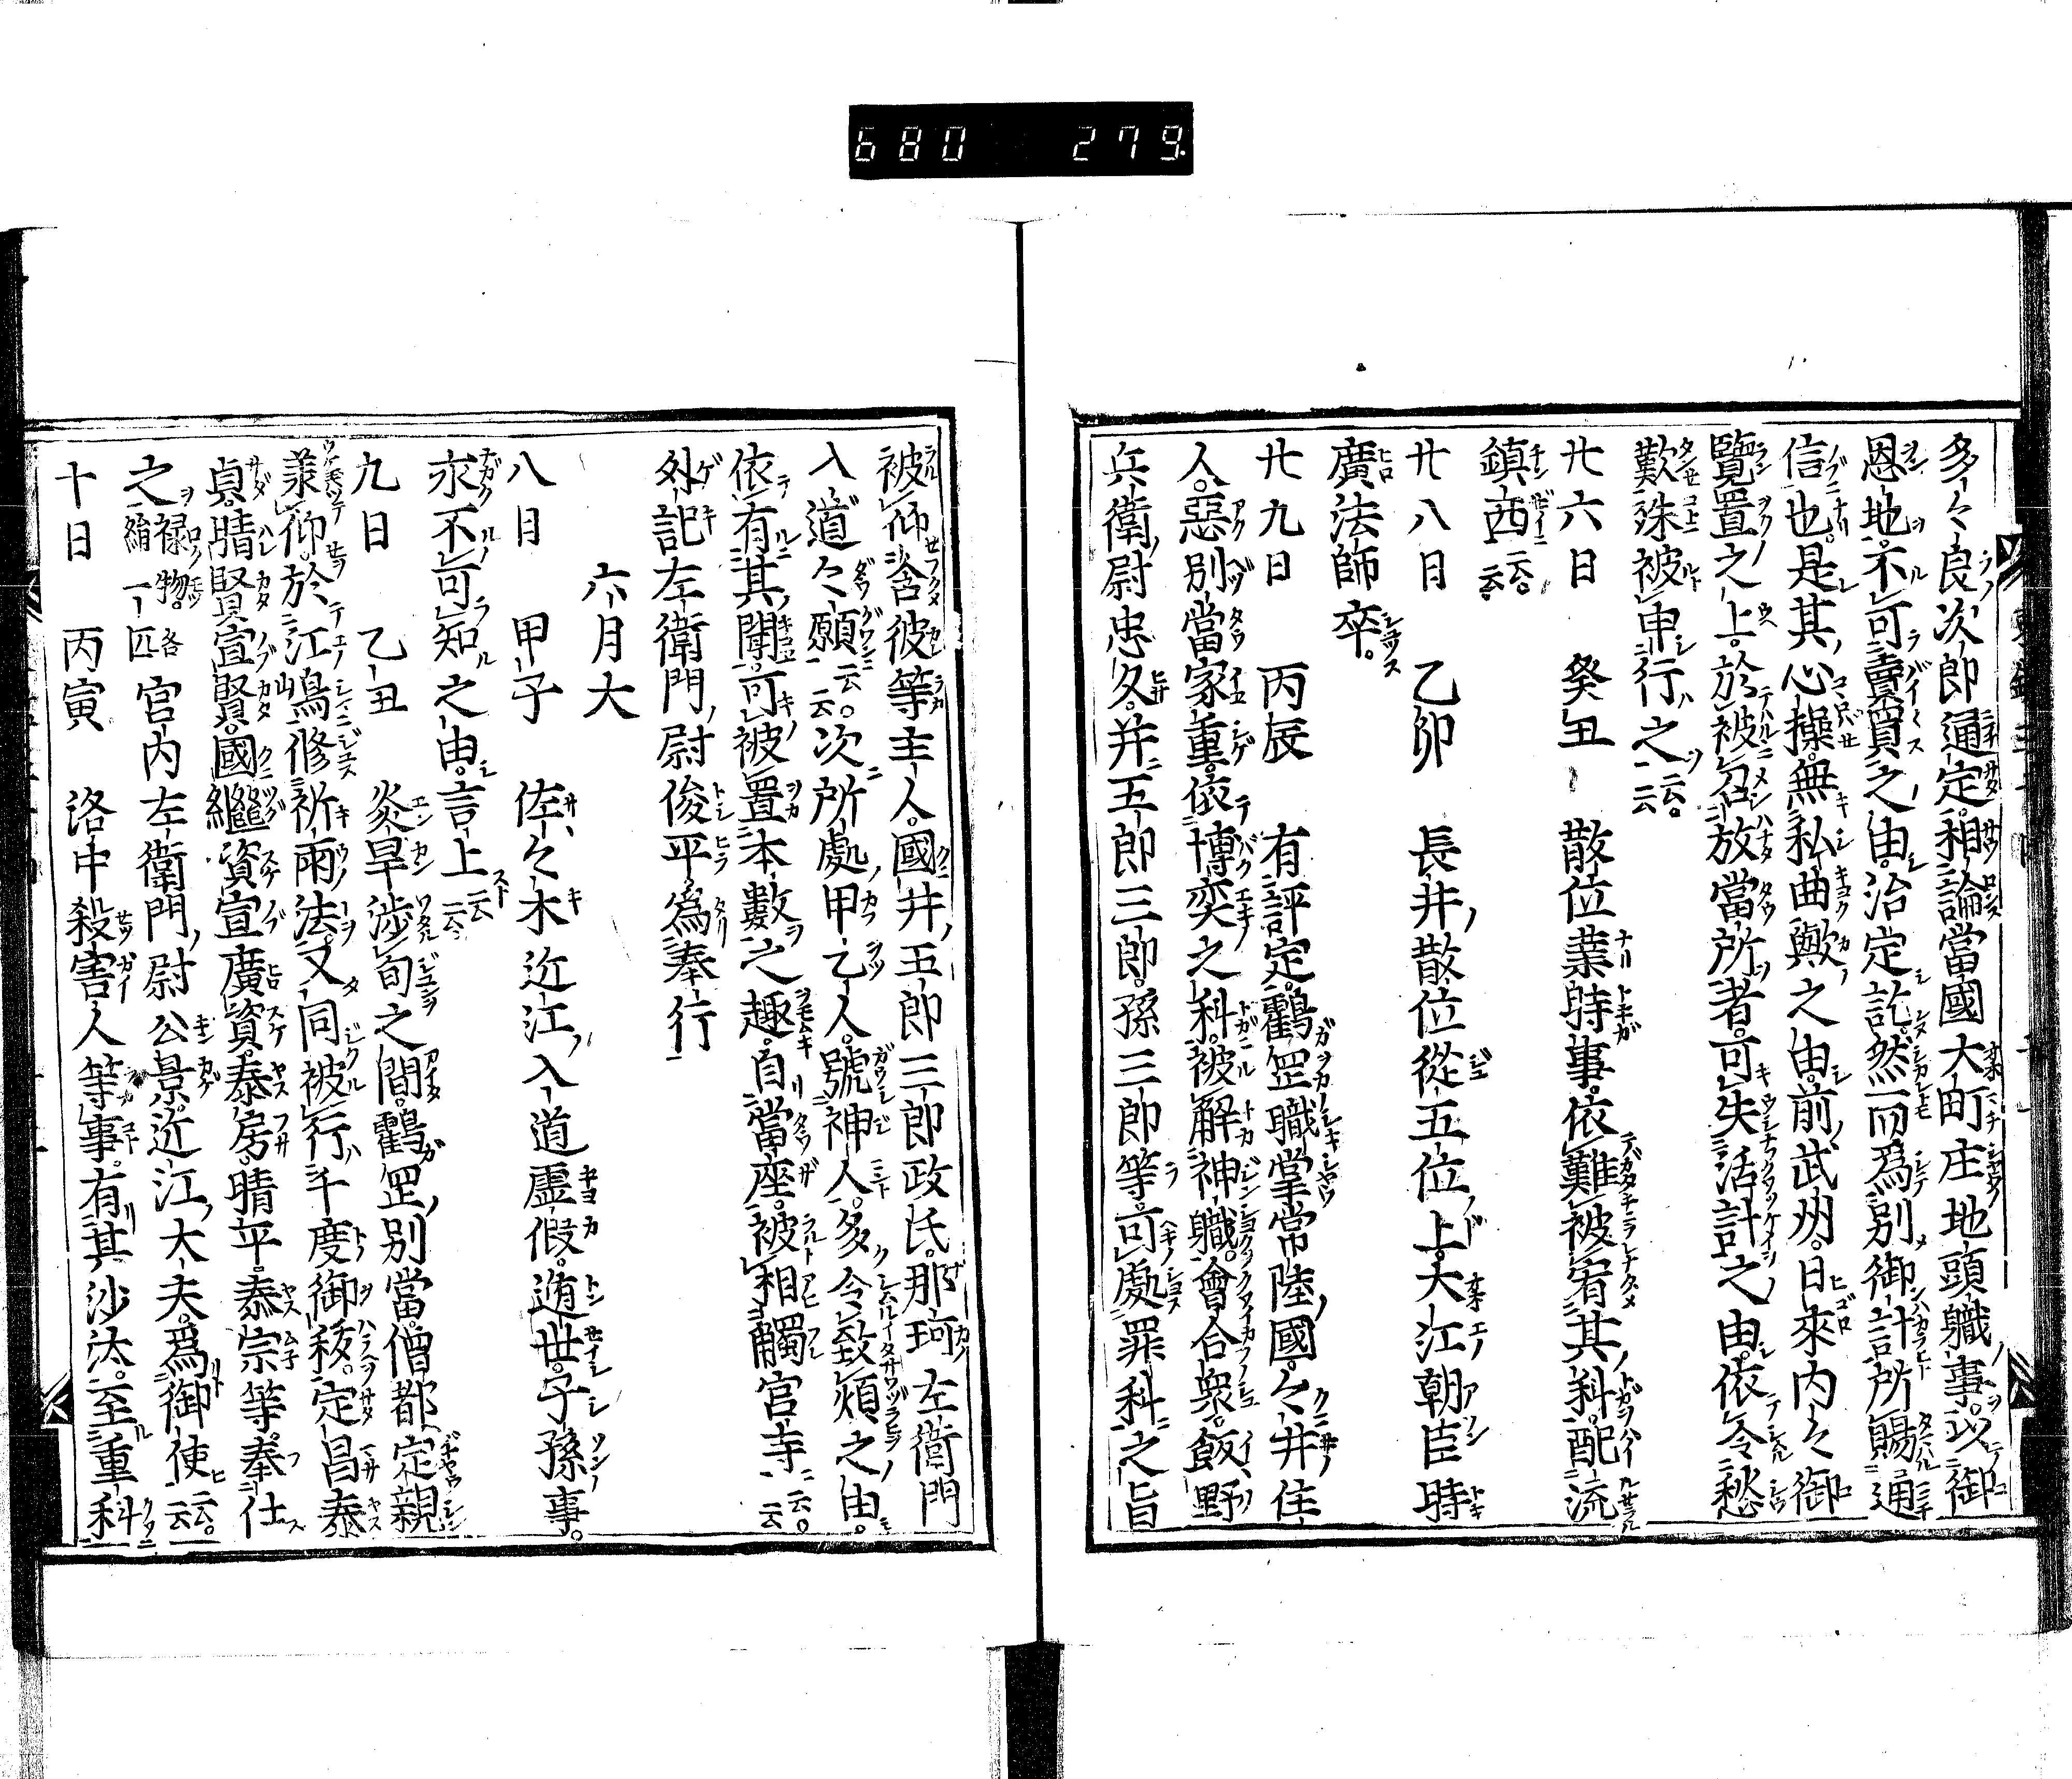 680 279
多々良次郎通定相論當國大町庄地頭職事以御
恩地不可賣買之由治定訖然而爲別御計所賜通
信也是其心操無私曲歟之由前武州日來内々御
覽置之上於被召放當所者可失活計之由依令愁
歎殊被申行之云云
廿六日 癸丑 散位業時事依難被宥其科配流
鎮西云云
廿八日 乙卯 長井散位從五位上大江朝臣時
廣法師卒
廿九日 丙辰 有評定鸖罡職掌常陸國々井住
人惡別當家重依博奕之科被解神職會合衆飯野
兵衛尉忠久并五郎三郎孫三郎等可處罪科之旨
被仰含彼等主人國井五郎三郎政氏那珂左衛門
入道々願云云次所處甲乙人號神人多令致煩之由
依有其聞可被置本數之趣自當座被相觸宮寺云云
外記左衛門尉俊平爲奉行
六月大
八日 甲子 佐々木近江入道虚假遁世子孫事
永不可知之由言上云云
九日 乙丑 炎旱渉旬之間鸖罡別當僧都定親
羕仰於江嶋修祈雨法又同被行千度御秡定昌泰
貞晴賢宣賢國繼資宣廣資泰房晴平泰宗等奉仕
之禄物各絹一匹宮内左衛門尉公景近江大夫爲御使云云
十日 丙寅 洛中殺害人等事有其沙汰至重科